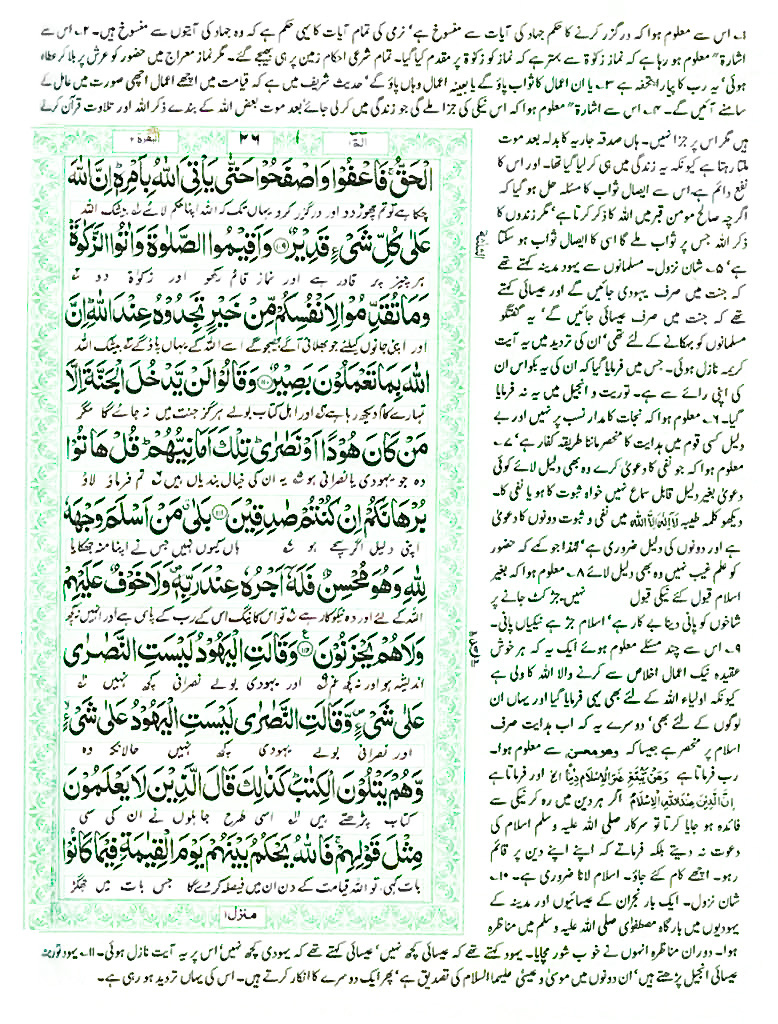 ۱۔ اس سے معلوم ہوا کہ درگزر کرنے کا حکم جہاد کی آیات سے منسوخ ہے' نرمی کی تمام آیات کا یہی حکم ہے کہ وہ جہاد کی آیتوں سے منسوخ ہیں۔ ۲۔ اس سے
اشارۃ" معلوم ہو رہا ہے کہ نماز زکوٰۃ سے بہتر ہے کہ نماز کو زکوٰۃ پر مقدم کیا گیا۔ تمام شرعی احکام زمین پر ہی بھیجے گئے۔ مگر نماز معراج میں حضور کو عرش پر بلا کر عطاء
ہوئی' یہ رب کا پیارا تحفہ ہے ۳۔ یا ان اعمال کا ثواب پاؤ گے یا بعینہ اعمال وہاں پاؤ گے' حدیث شریف میں ہے کہ قیامت میں اچھے اعمال اچھی صورت میں عامل کے
سامنے آئیں گے۔ ۴۔ اس سے اشارۃ" معلوم ہوا کہ اس نیکی کی جزا ملے گی جو زندگی میں کر لی جائے بعد موت بعض اللہ کے بندے ذکر اللہ اور تلاوت قرآن کرتے
ہیں مگر اس پر جزا نہیں۔ ہاں صدقہ جاریہ کا بدلہ بعد موت
ملتا رہتا ہے کیونکہ یہ زندگی میں ہی کر لیا گیا تھا۔ اور اس کا
نفع دائم ہے اس سے ایصال ثواب کا مسئلہ حل ہو گیا کہ
اگرچہ صالح مومن قبر میں اللہ کا ذکر کرتا ہے' مگر زندوں کا
ذکر اللہ جس پر ثواب ملے گا اس کا ایصال ثواب ہو سکتا
ہے' ۵۔ شان نزول۔ مسلمانوں سے یہود مدینہ کہتے تھے
کہ جنت میں صرف یہودی جائیں گے اور عیسائی کہتے
تھے کہ جنت میں صرف عیسائی جائیں گے' یہ گفتگو
مسلمانوں کو بہکانے کے لئے تھی' ان کی تردید میں یہ آیت
کریمہ نازل ہوئی۔ جس میں فرمایا گیا کہ ان کی یہ بکواس ان
کی اپنی رائے سے ہے۔ توریت و انجیل میں یہ نہ فرمایا
گیا۔ ۶۔ معلوم ہوا کہ نجات کا مدار نسب پر نہیں اور بے
دلیل کسی قوم میں ہدایت کا منحصر ماننا طریقہ کفار ہے' ۷۔
معلوم ہوا کہ جو نفی کا دعویٰ کرے وہ بھی دلیل لائے کوئی
دعویٰ بغیر دلیل قابل سماع نہیں خواہ ثبوت کا ہو یا نفی کا۔
دیکھو کلمہ طیبہ لا الہ الا اللہ میں نفی و ثبوت دونوں کا دعویٰ
ہے اور دونوں کی دلیل ضروری ہے' لہٰذا جو کہے کہ حضور
کو علم غیب نہیں وہ بھی دلیل لائے ۸۔ معلوم ہوا کہ بغیر
اسلام قبول کئے نیکی قبول نہیں۔ جڑ کٹ جانے پر
شاخوں کو پانی دینا بے کار ہے' اسلام جڑ ہے نیکیاں پانی۔
۹۔ اس سے چند مسئلے معلوم ہوئے ایک یہ کہ ہر خوش
عقیدہ نیک اعمال اخلاص سے کرنے والا اللہ کا ولی ہے
کیونکہ اولیاء اللہ کے لئے بھی یہی فرمایا گیا اور یہاں ان
لوگوں کے لئے بھی' دوسرے یہ کہ اب ہدایت صرف
اسلام پر منحصر ہے جیسا کہ وھو محسن سے معلوم ہوا۔
رب فرماتا ہے وَمَنْ يَّبْتَغِ غَيْرَ الْاِسْلَامِ دِيْنًا اور فرماتا ہے
اِنَّ الدِّيْنَ عِنْدَ اللّٰهِ الْاِسْلَامُ اگر ہر دین میں رہ کر نیکی سے
فائدہ ہو جایا کرتا تو سرکار صلی اللہ علیہ وسلم اسلام کی
دعوت نہ دیتے بلکہ فرماتے کہ اپنے اپنے دین پر قائم
رہو۔ اچھے کام کئے جاؤ۔ اسلام لانا ضروری ہے۔ ۱۰۔
شان نزول۔ ایک بار نجران کے عیسائیوں اور مدینہ کے
یہودیوں میں بارگاہ مصطفوی صلی اللہ علیہ وسلم میں مناظرہ
البقرۃ ۲
۲۶
الۤمّۤ ۱
الْحَقُّ ۚ فَاعْفُوْا وَاصْفَحُوْا حَتّٰى يَاْتِيَ اللّٰهُ بِاَمْرِهٖ ؕ اِنَّ اللّٰهَ
چکا ہے تو تم چھوڑ دو اور درگزر کرو یہاں تک کہ اللہ اپنا حکم لائے بیشک اللہ
عَلٰى كُلِّ شَيْءٍ قَدِيْرٌ ﴿۱۰۹﴾ وَاَقِيْمُوا الصَّلٰوةَ وَاٰتُوا الزَّكٰوةَ ؕ
ہر چیز پر قادر ہے اور نماز قائم رکھو اور زکوٰۃ دو
وَمَا تُقَدِّمُوْا لِاَنْفُسِكُمْ مِّنْ خَيْرٍ تَجِدُوْهُ عِنْدَ اللّٰهِ ؕ اِنَّ
اور اپنی جانوں کیلئے جو بھلائی آگے بھیجو گے اسے اللہ کے یہاں پاؤ گے بیشک اللہ
اللّٰهَ بِمَا تَعْمَلُوْنَ بَصِيْرٌ ﴿۱۱۰﴾ وَقَالُوْا لَنْ يَّدْخُلَ الْجَنَّةَ اِلَّا
تمہارے کام دیکھ رہا ہے اور اہل کتاب بولے ہرگز جنت میں نہ جائے گا مگر
مَنْ كَانَ هُوْدًا اَوْ نَصٰرٰى ؕ تِلْكَ اَمَانِيُّهُمْ ؕ قُلْ هَاتُوْا
وہ جو یہودی یا نصرانی ہو یہ ان کی خیال بندیاں ہیں تم فرماؤ لاؤ
بُرْهَانَكُمْ اِنْ كُنْتُمْ صٰدِقِيْنَ ﴿۱۱۱﴾ بَلٰى ۗ مَنْ اَسْلَمَ وَجْهَهٗ
اپنی دلیل اگر سچے ہو ہاں کیوں نہیں جس نے اپنا منہ جھکایا
لِلّٰهِ وَهُوَ مُحْسِنٌ فَلَهٗٓ اَجْرُهٗ عِنْدَ رَبِّهٖ ۪ وَلَا خَوْفٌ عَلَيْهِمْ
اللہ کے لئے اور وہ نیکوکار ہے تو اس کا نیگ اس کے رب کے پاس ہے اور انہیں نہ کچھ
وَلَا هُمْ يَحْزَنُوْنَ ﴿۱۱۲﴾ وَقَالَتِ الْيَهُوْدُ لَيْسَتِ النَّصٰرٰى
اندیشہ ہو اور نہ کچھ غم اور یہودی بولے نصرانی کچھ نہیں
عَلٰى شَيْءٍ ۪ وَّقَالَتِ النَّصٰرٰى لَيْسَتِ الْيَهُوْدُ عَلٰى شَيْءٍ ۙ
اور نصرانی بولے یہودی کچھ نہیں حالانکہ وہ
وَّهُمْ يَتْلُوْنَ الْكِتٰبَ ؕ كَذٰلِكَ قَالَ الَّذِيْنَ لَا يَعْلَمُوْنَ
کتاب پڑھتے ہیں اسی طرح جاہلوں نے ان کی سی
مِثْلَ قَوْلِهِمْ ۚ فَاللّٰهُ يَحْكُمُ بَيْنَهُمْ يَوْمَ الْقِيٰمَةِ فِيْمَا كَانُوْا
بات کہی تو اللہ قیامت کے دن ان میں فیصلہ کر دے گا جس بات میں جھگڑ
منزل ۱
ہوا۔ دوران مناظرہ انہوں نے خوب شور مچایا۔ یہود کہتے تھے کہ عیسائی کچھ نہیں' عیسائی کہتے تھے کہ یہودی کچھ نہیں' اس پر یہ آیت نازل ہوئی۔ ۱۱۔ یہود توریت
عیسائی انجیل پڑھتے ہیں' ان دونوں میں موسیٰ و عیسیٰ علیہما السلام کی تصدیق ہے' پھر ایک دوسرے کا انکار کرتے ہیں۔ اس کی یہاں تردید ہو رہی ہے۔